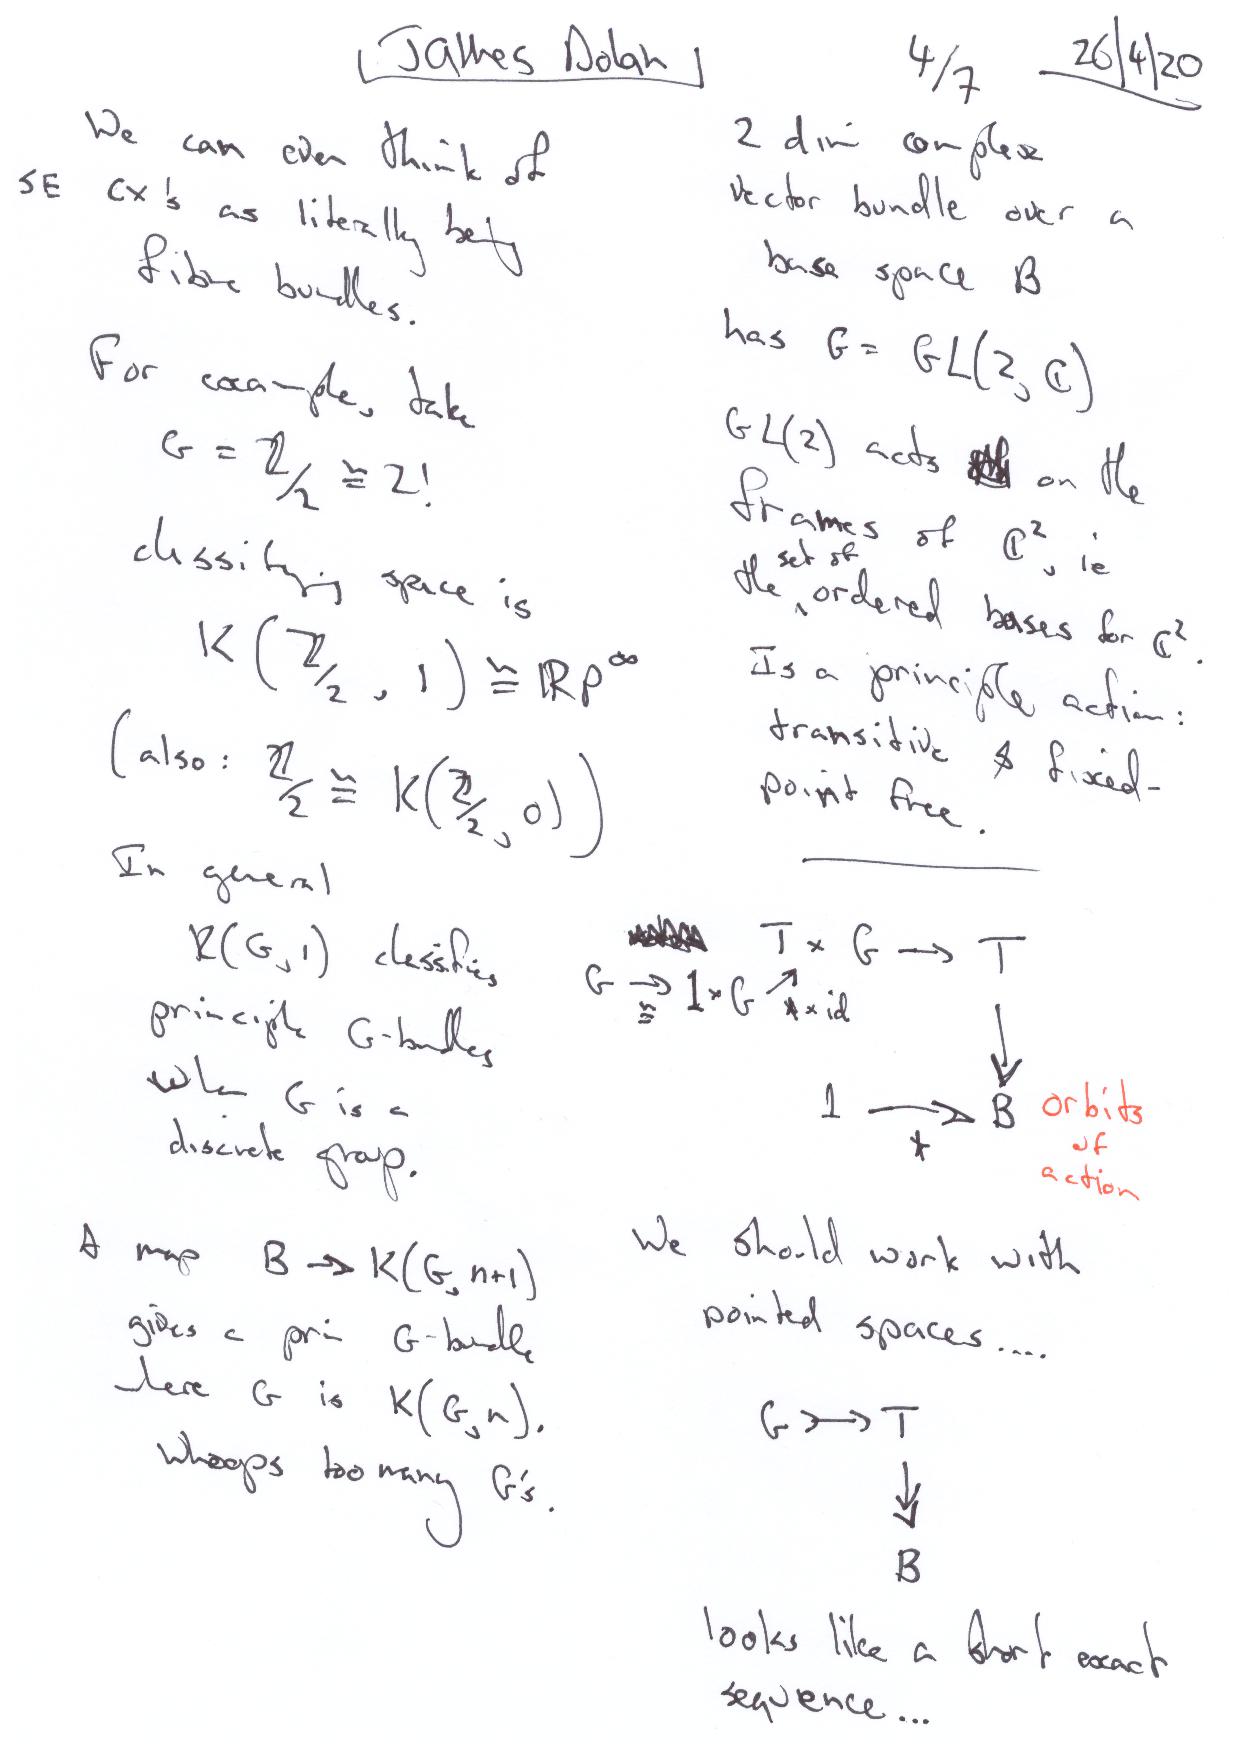 James Dolan 4/7 26/4/20
We can even think of
SE cx's as literally being
fibre bundles.
For example, take
G = ℤ/2 ≅ 2!
classifying space is
K(ℤ/2, 1) ≅ ℝP^∞
(also: ℤ/2 ≅ K(ℤ/2, 0))
In general
K(G,1) classifies
principle G-bundles
when G is a
discrete group.
A map B → K(G, n+1)
gives a prin G-bundle
where G is K(G,n).
Whoops too many G's.
2 dim complex
vector bundle over a
base space B
has G = GL(2, ℂ)
GL(2) acts on the
frames of ℂ², ie
the set of ordered bases for ℂ².
Is a principle action:
transitive & fixed-
point free.
T × G → T
G → 1 × G ↗ * × id
≅
↓
1 → B orbits
* of
action
We should work with
pointed spaces....
G ↣ T
↓
B
looks like a short exact
sequence...